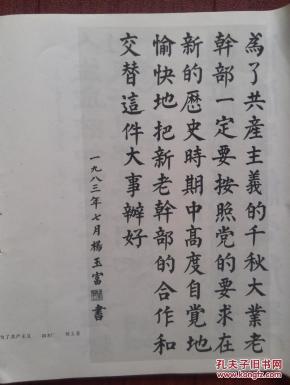 為了共産主義的千秋大業老
幹部一定要按照党的要求在
新的歷史時期中高度自覚地
愉快地把新老幹部的合作和
交替這件大事辦好
一九八三年七月楊玉富書
为了共产主义
孔夫子旧书网